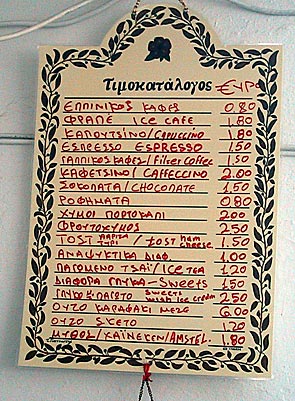 Τιμοκατάλογος ΕΥΡΩ
ΕΛΛΗΝΙΚΟΣ ΚΑΦΕΣ 0.80
ΦΡΑΠΕ ICE CAFE 1.80
ΚΑΠΟΥΤΣΙΝΟ/CAPUCCINO 1.80
ESPRESSO ESPRESSO 1.50
ΓΑΛΛΙΚΟΣ ΚΑΦΕΣ/Filter Coffee 1.50
ΚΑΦΕΤΣΙΝΟ/CAFFECCINO 2.00
ΣΟΚΟΛΑΤΑ/CHOCOLATE 1.50
ΡΟΦΗΜΑΤΑ 0.80
ΧΥΜΟΙ ΠΟΡΤΟΚΑΛΙ 2.00
ΦΡΟΥΤΟΧΥΜΟΣ 2.50
TOST ΤΥΡΙ / tost ham cheese 1.50
ΑΝΑΨΥΚΤΙΚΑ ΔΙΑΦ. 1.00
ΠΑΓΩΜΕΝΟ ΤΣΑΪ/ICE TEA 1.20
ΔΙΑΦΟΡΑ ΓΛΥΚΑ-SWEETS 1.50
ΓΛΥΚΟ & ΠΑΓΩΤΟ sweets with ice cream 2.50
ΟΥΖΟ ΚΑΡΑΦΑΚΙ ΜΕΖΕ 6.00
ΟΥΖΟ ΣΚΕΤΟ 1.20
ΜΥΘΟΣ/ΧΑΪΝΕΚΕΝ/AMSTEL. 1.80